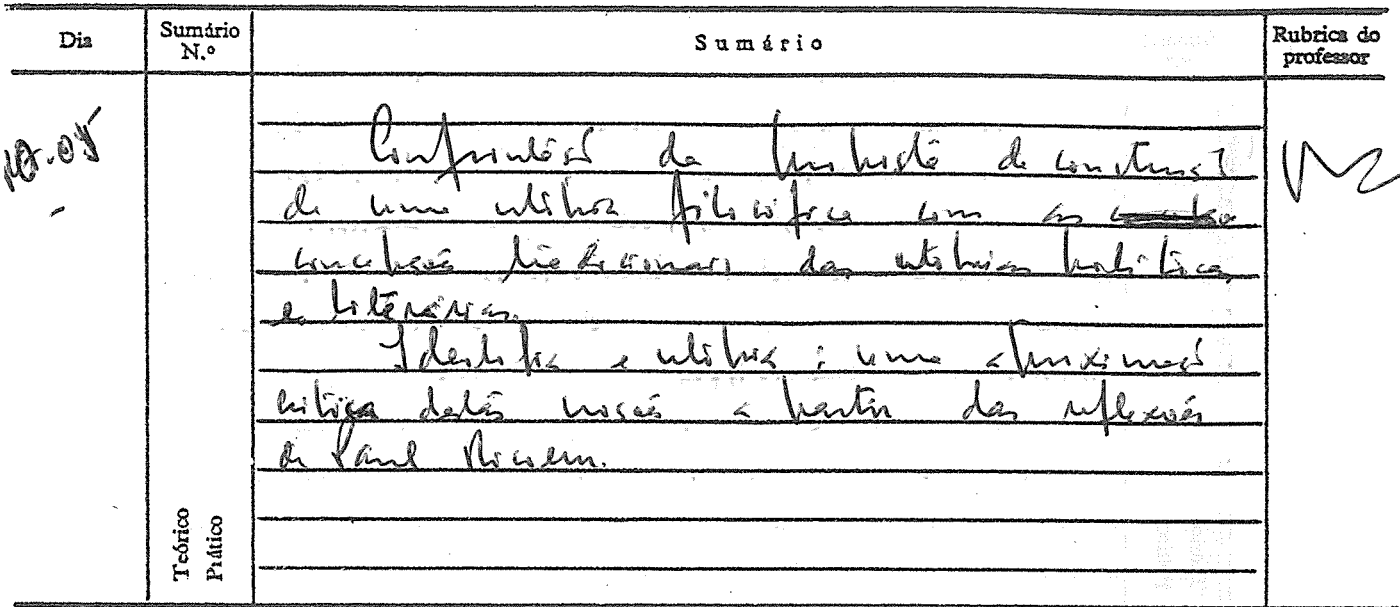 Dia
Sumário N.º
Sumário
Rubrica do professor
Confrontação da proposta de construção
de uma utopia filosófica com as
concepções tradicionais das utopias políticas
e literárias.
Ideologia e utopia: uma aproximação
crítica destas noções a partir das reflexões
de Paul Ricoeur.
Teórico
Prático